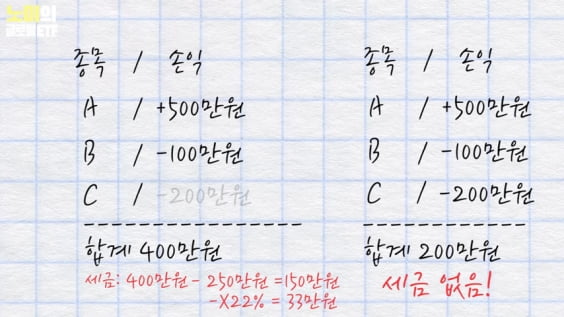 노마의
글로벌ETF
종목 / 손익
A / +500만원
B / -100만원
C / -200만원
합계 400만원
세금: 400만원 - 250만원 =150만원
-X22% = 33만원
종목 / 손익
A / +500만원
B / -100만원
C / -200만원
합계 200만원
세금 없음!